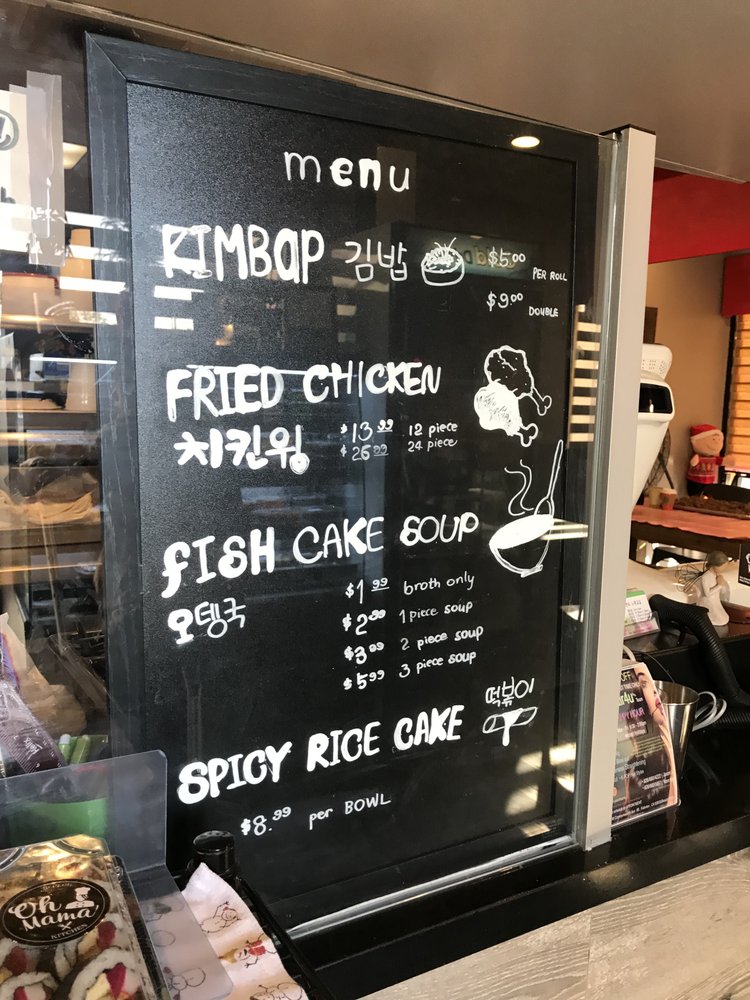 menu
KIMBAP 김밥 $5.00 PER ROLL
$9.00 DOUBLE
FRIED CHICKEN
치킨윙 $13.99 12 piece
$26.99 24 piece
FISH CAKE SOUP
오뎅국 $1.99 broth only
$2.99 1 piece soup
$3.99 2 piece soup
$5.99 3 piece soup
떡볶이
SPICY RICE CAKE
$8.99 per BOWL
Oh
Mama
KITCHEN